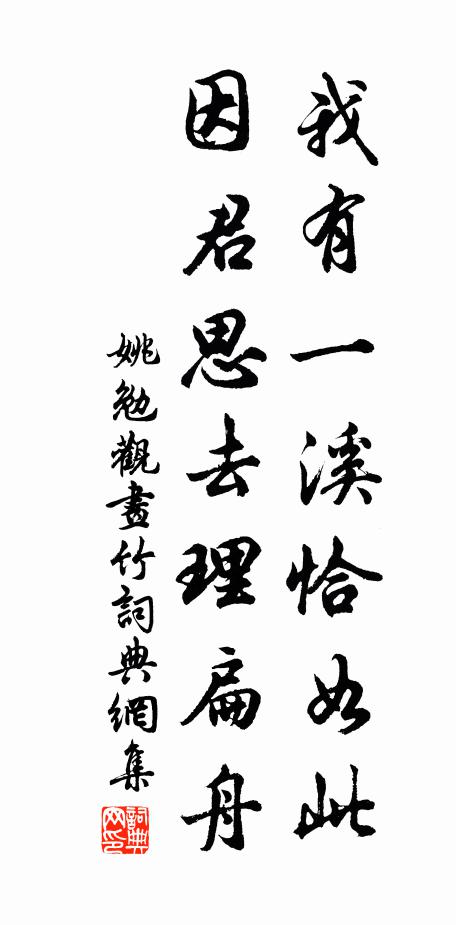 我有一溪恰如此
因君思去理扁舟
姚勉觀畫竹詞典網集
詞典網印